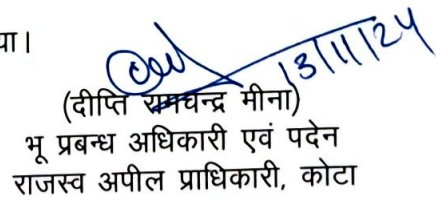 या।
13/11/24
(दीप्ति रामचन्द्र मीना)
भू प्रबन्ध अधिकारी एवं पदेन
राजस्व अपील प्राधिकारी, कोटा